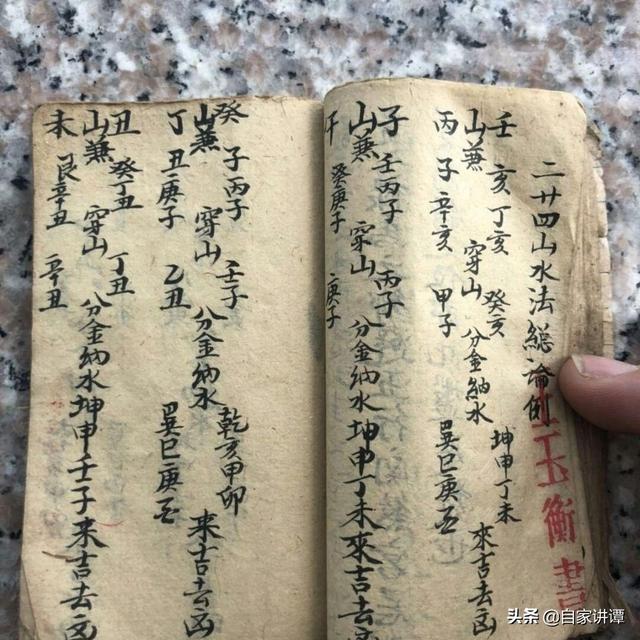 二廿四山水法總論例
玉 書
壬 亥 丁亥 癸亥 坤申丁未
山兼 穿山 分金納水 來吉去凶
丙 子 辛亥 甲子 巽巳庚酉
子 壬丙子 丙子
山兼 穿山 分金納水坤申丁未來吉去凶
午 癸庚子 庚子
癸 子 丙子 壬子 乾亥甲卯
山兼 穿山 分金納水 來吉去凶
丁 丑 庚子 乙丑 巽巳庚酉
丑 癸丁丑 丁丑
山兼 穿山 分金納水坤申壬子來吉去凶
未 艮辛丑 辛丑
头条 @自家讲谭